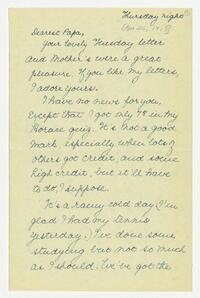 Thursday night
Dearest Papa,
Your lovely Tuesday letter
and Mother's were a great
pleasure. If you like my letters,
I adore yours.
I have no news for you,
except that I got only 78 in my
Horace quiz. It's not a good
mark, especially when lots of
others got credit, and some
high credit, but it'll have
to do, I suppose.
It's a rainy cold day. (I'm
glad I had my tennis
yesterday.) I've done some
studying but not so much
as I should. We've got the